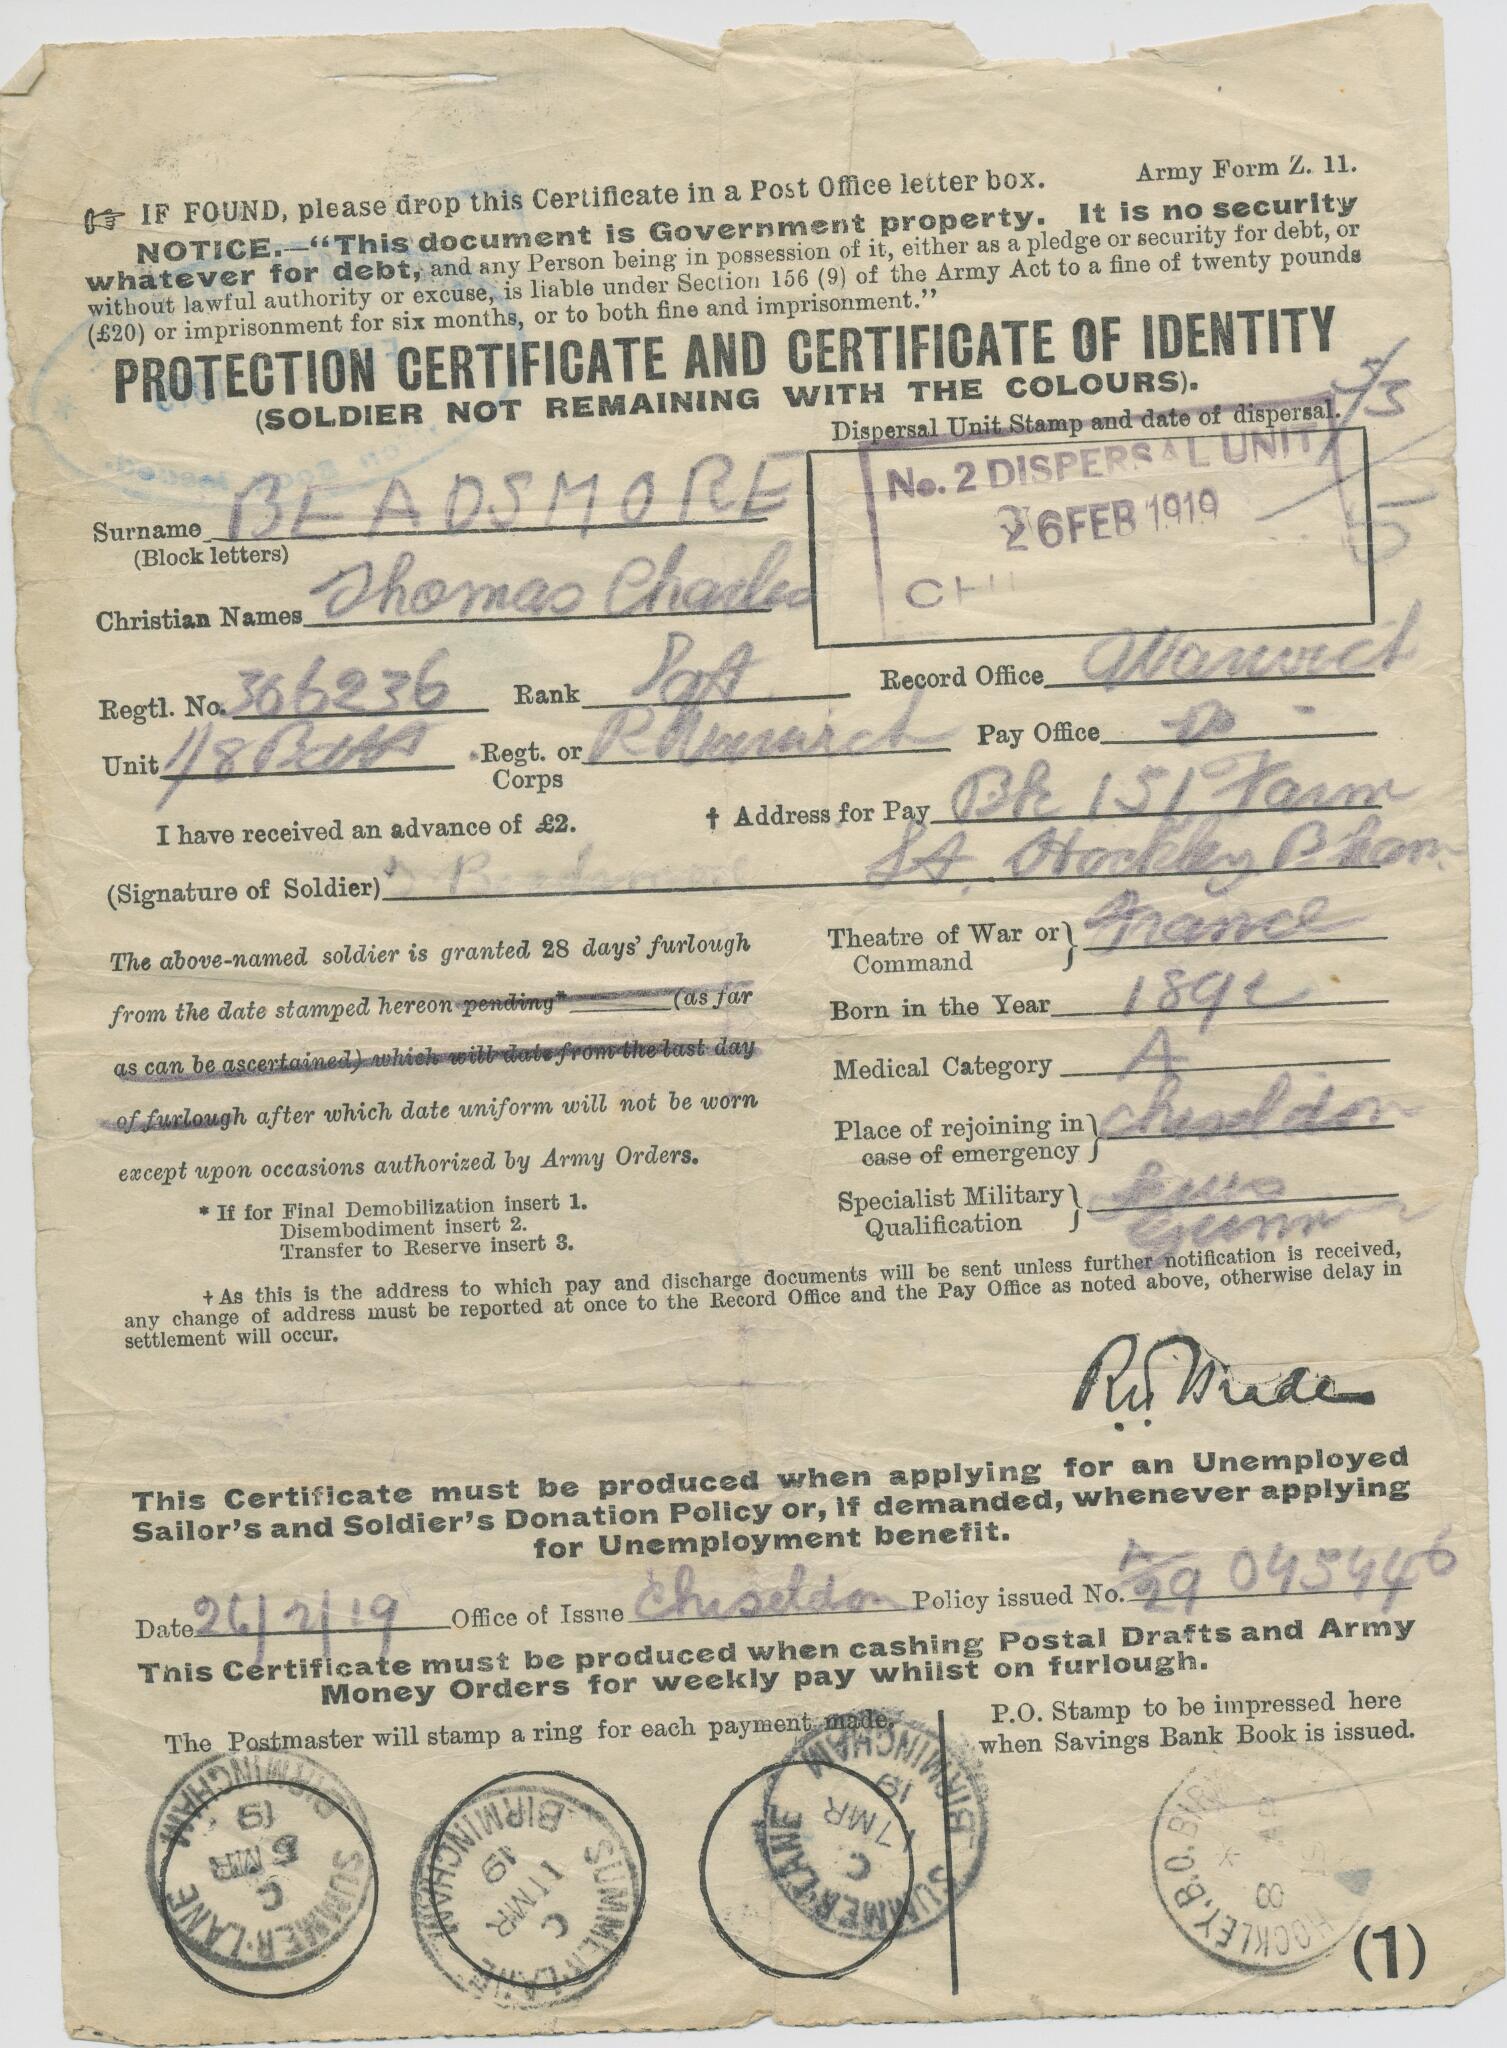 Army Form Z. 11.
☞ IF FOUND, please drop this Certificate in a Post Office letter box.
NOTICE.—“This document is Government property. It is no security
whatever for debt, and any Person being in possession of it, either as a pledge or security for debt, or
without lawful authority or excuse, is liable under Section 156 (9) of the Army Act to a fine of twenty pounds
(£20) or imprisonment for six months, or to both fine and imprisonment.”
PROTECTION CERTIFICATE AND CERTIFICATE OF IDENTITY
(SOLDIER NOT REMAINING WITH THE COLOURS).
Dispersal Unit Stamp and date of dispersal.
No. 2 DISPERSAL UNIT
26 FEB 1919
Surname BEADSMORE
(Block letters)
Christian Names Thomas Charles
Regtl. No. 306236 Rank Record Office Warwick
Unit 1/8 Batt Regt. or Corps R Warwick Pay Office Do
I have received an advance of £2. † Address for Pay Bk 151 Farm
St. Hockley B'ham
(Signature of Soldier) Beadsmore
The above-named soldier is granted 28 days’ furlough
from the date stamped hereon pending* (as far
as can be ascertained) which will date from the last day
of furlough after which date uniform will not be worn
except upon occasions authorized by Army Orders.
* If for Final Demobilization insert 1.
Disembodiment insert 2.
Transfer to Reserve insert 3.
Theatre of War or Command France
Born in the Year 1892
Medical Category A
Place of rejoining in case of emergency Chiseldon
Specialist Military Qualification Lewis Gunner
† As this is the address to which pay and discharge documents will be sent unless further notification is received,
any change of address must be reported at once to the Record Office and the Pay Office as noted above, otherwise delay in
settlement will occur.
This Certificate must be produced when applying for an Unemployed
Sailor’s and Soldier’s Donation Policy or, if demanded, whenever applying
for Unemployment benefit.
Date 26/2/19 Office of Issue Chiseldon Policy issued No. A/29 045446
This Certificate must be produced when cashing Postal Drafts and Army
Money Orders for weekly pay whilst on furlough.
The Postmaster will stamp a ring for each payment made.
P.O. Stamp to be impressed here
when Savings Bank Book is issued.
SUMMER-LANE BIRMINGHAM C MR 19
SUMMER-LANE BIRMINGHAM C 11 MR 19
SUMMER-LANE BIRMINGHAM C 17 MR 19
HOCKLEY. B.O. BIRM
(1)